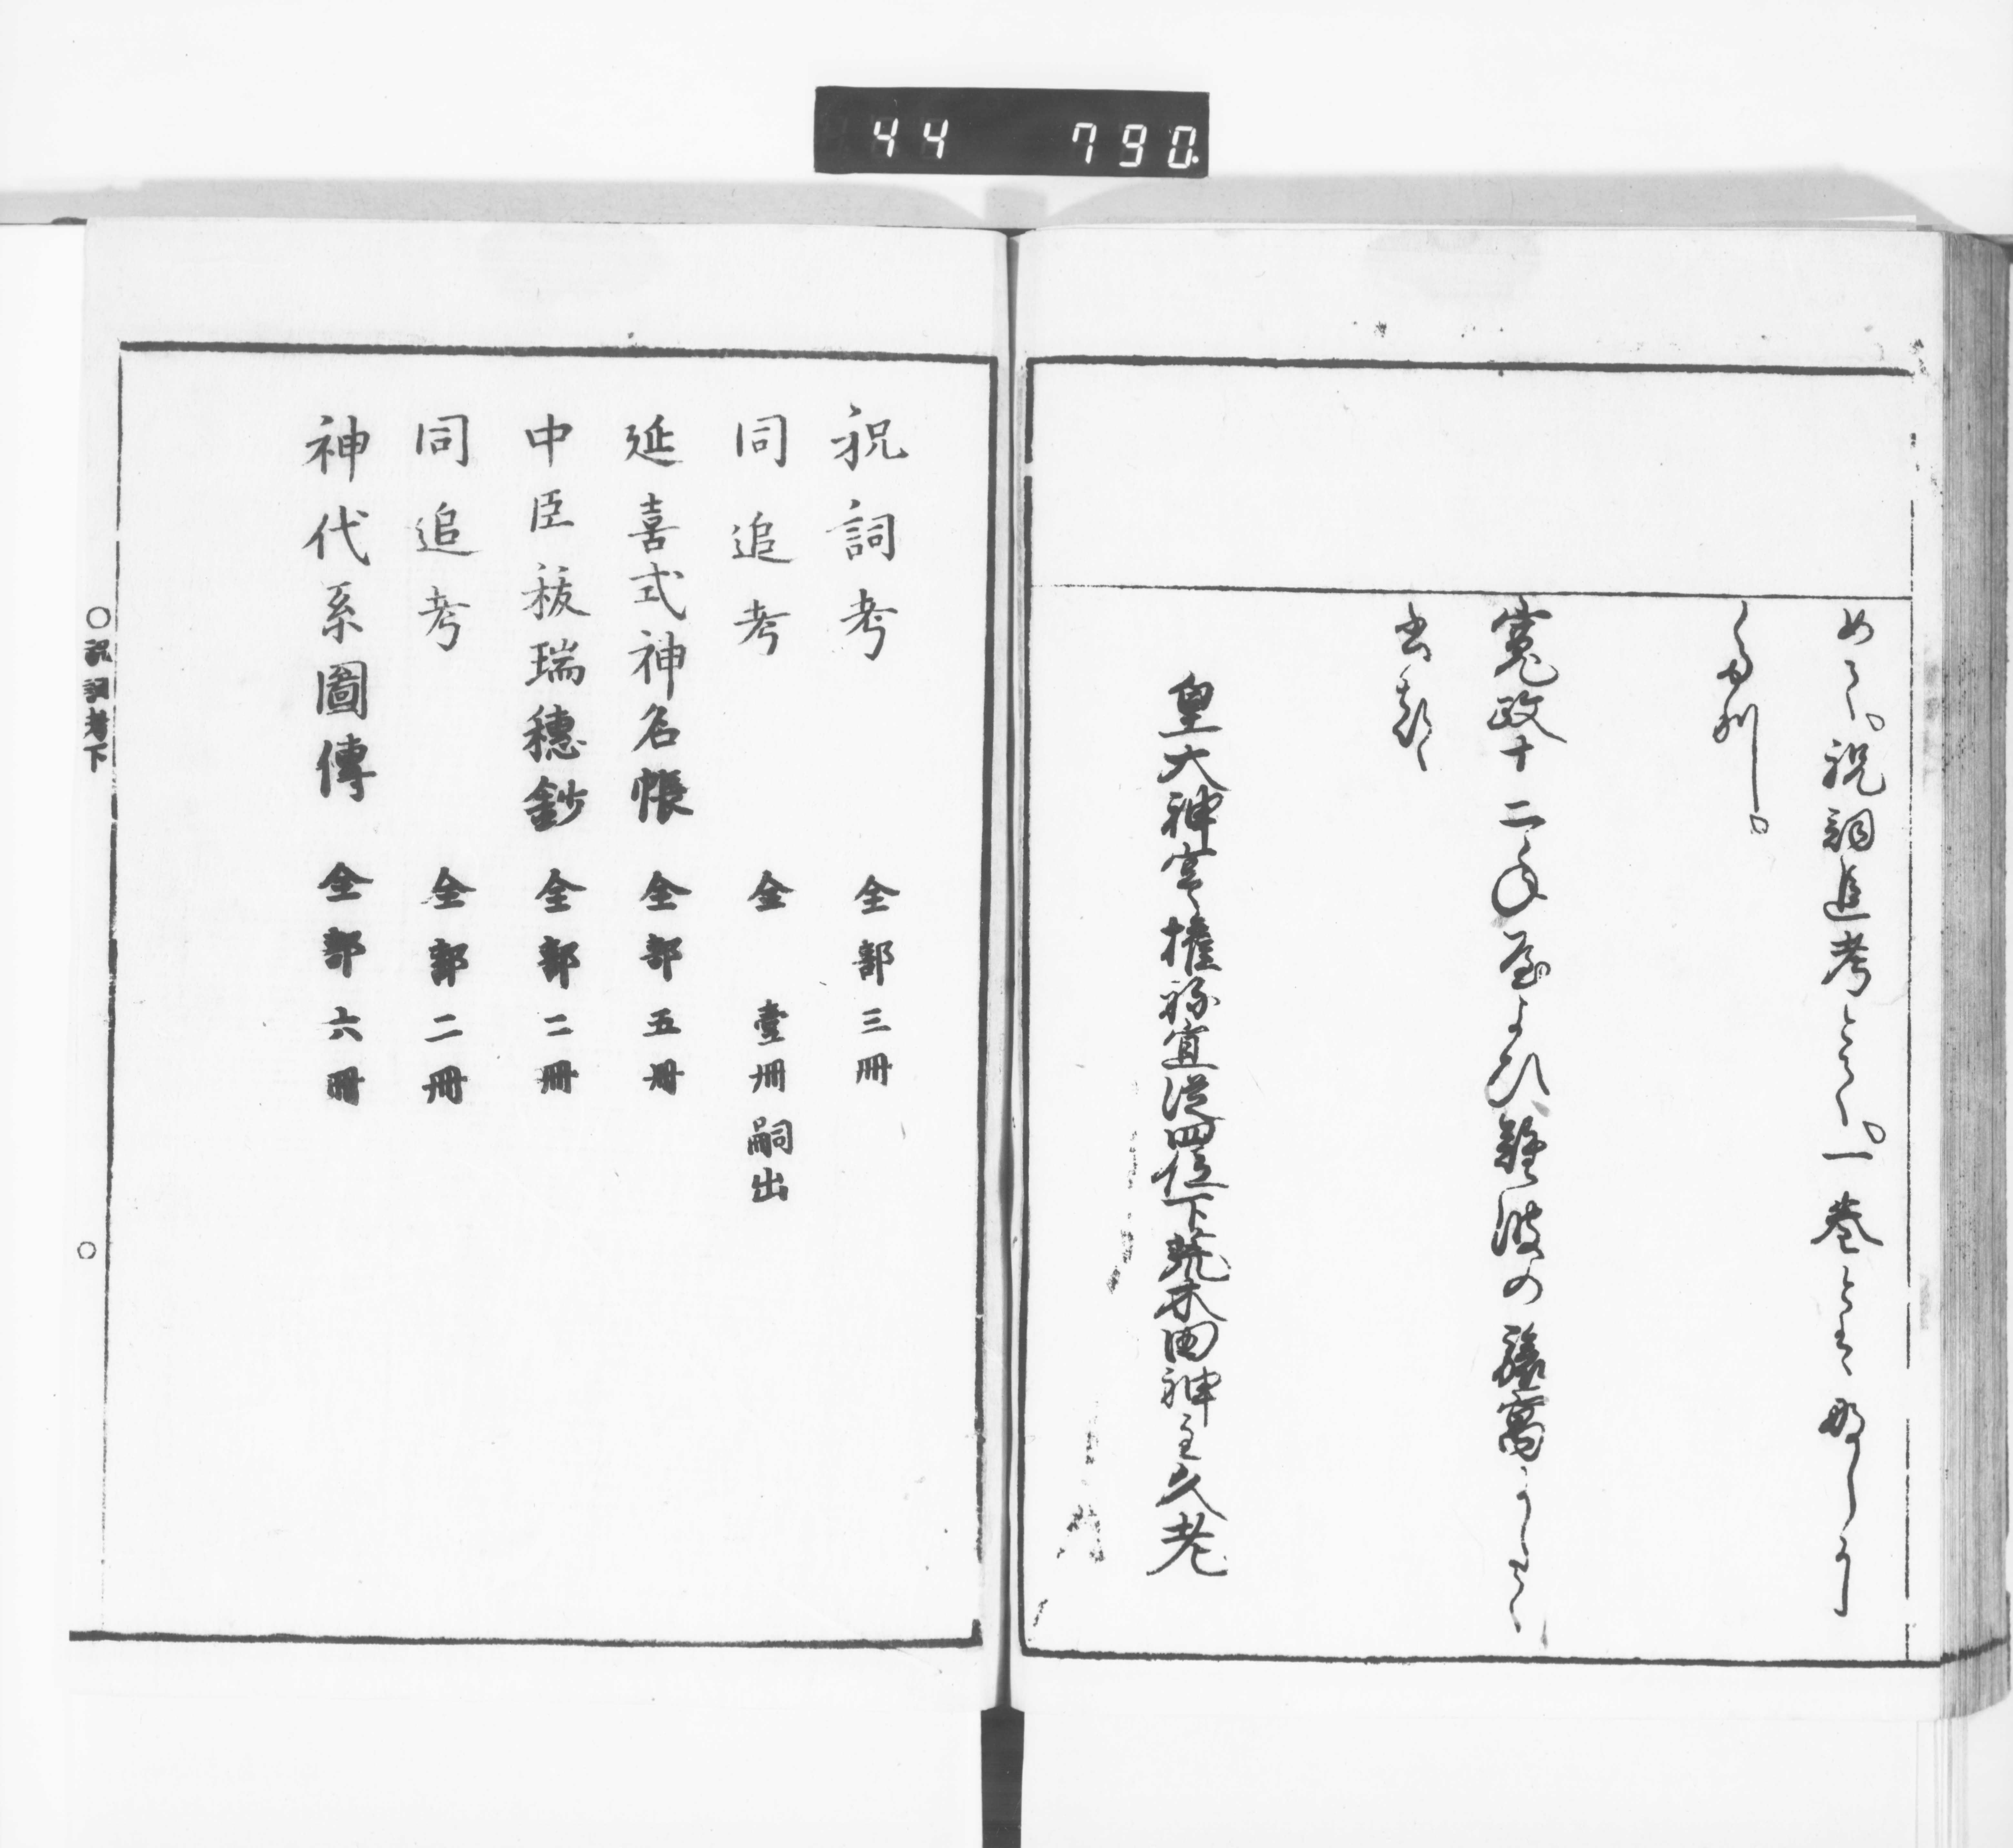 44 790
めて。祝詞追考とて。一巻とはなしつ
寛政十二年 難波の旅窩にして
皇大神宮権祢宜従四位下荒木田神主久老
祝詞考 全部三冊
同追考 全 壹冊 嗣出
延喜式神名帳 全部五冊
中臣祓瑞穗鈔 全部二冊
同追考 全部二冊
神代系圖傳 全部六冊
○祝詞考下 ○